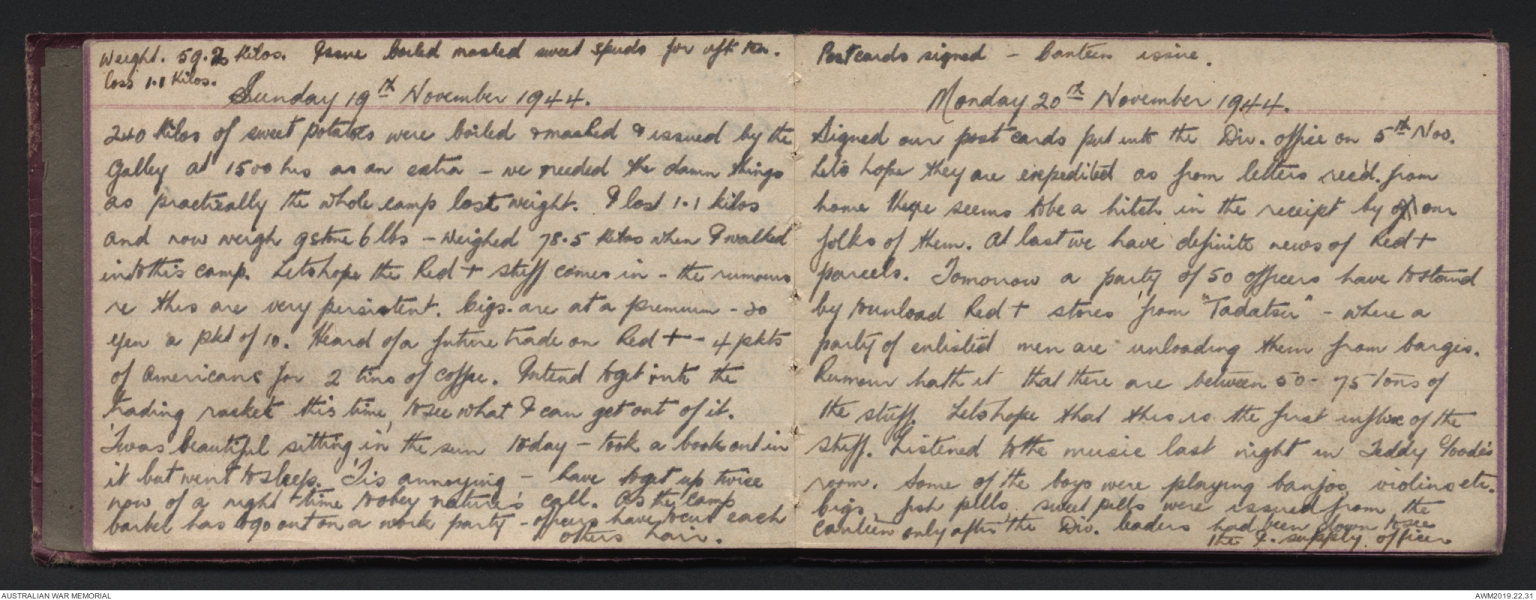 Weight. 59.2 Kilos. Issue boiled mashed sweet spuds for aft tea.
loss 1.1 Kilos.
Sunday 19th November 1944.
240 Kilos of sweet potatoes were boiled & mashed & issued by the
Galley at 1500 hrs as an extra - we needed the damn things
as practically the whole camp lost weight. I lost 1.1 kilos
and now weigh 9 stone 6 lbs - weighed 78.5 kilos when I walked
into this camp. Lets hope the Red + stuff comes in - the rumours
re this are very persistent. Cigs. are at a premium - 20
Yen a pkt of 10. Heard of a future trade on Red + - 4 pkts
of Americans for 2 tins of coffee. Intend to get into the
trading racket this time to see what I can get out of it.
'Twas beautiful sitting in the sun today - took a book out in
it but went to sleep. 'Tis annoying - have to get up twice
now of a night time to obey nature's call. As the camp
barber has to go out on a work party - officers have to cut each
others hair.
Postcards signed - Canteen issue.
Monday 20th November 1944.
Signed our post cards put into the Div. office on 5th Nov.
Lets hope they are expedited as from letters rec'd. from
home there seems to be a hitch in the receipt by our
folks of them. At last we have definite news of Red +
parcels. Tomorrow a party of 50 officers have to stand
by to unload Red + stores from "Tadatsu" - where a
party of enlisted men are unloading them from barges.
Rumour hath it that there are between 50 - 75 tons of
the stuff. Lets hope that this is the first influx of the
stuff. Listened to the music last night in Teddy Goode's
room. Some of the boys were playing banjos, violins etc.
Cigs, fish pills, sweet pills were issued from the
canteen only after the Div. leaders had been down to see
the Q. supply officer
AUSTRALIAN WAR MEMORIAL
AWM2019.22.31